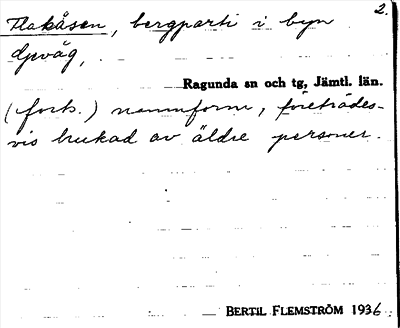 2.
Flakåsen, bergparti i byn
Ljeväg,
Ragunda sn och tg, Jämtl. län.
(forts.) namnform, företrädes-
vis brukad av äldre personer.
BERTIL FLEMSTRÖM 1936.